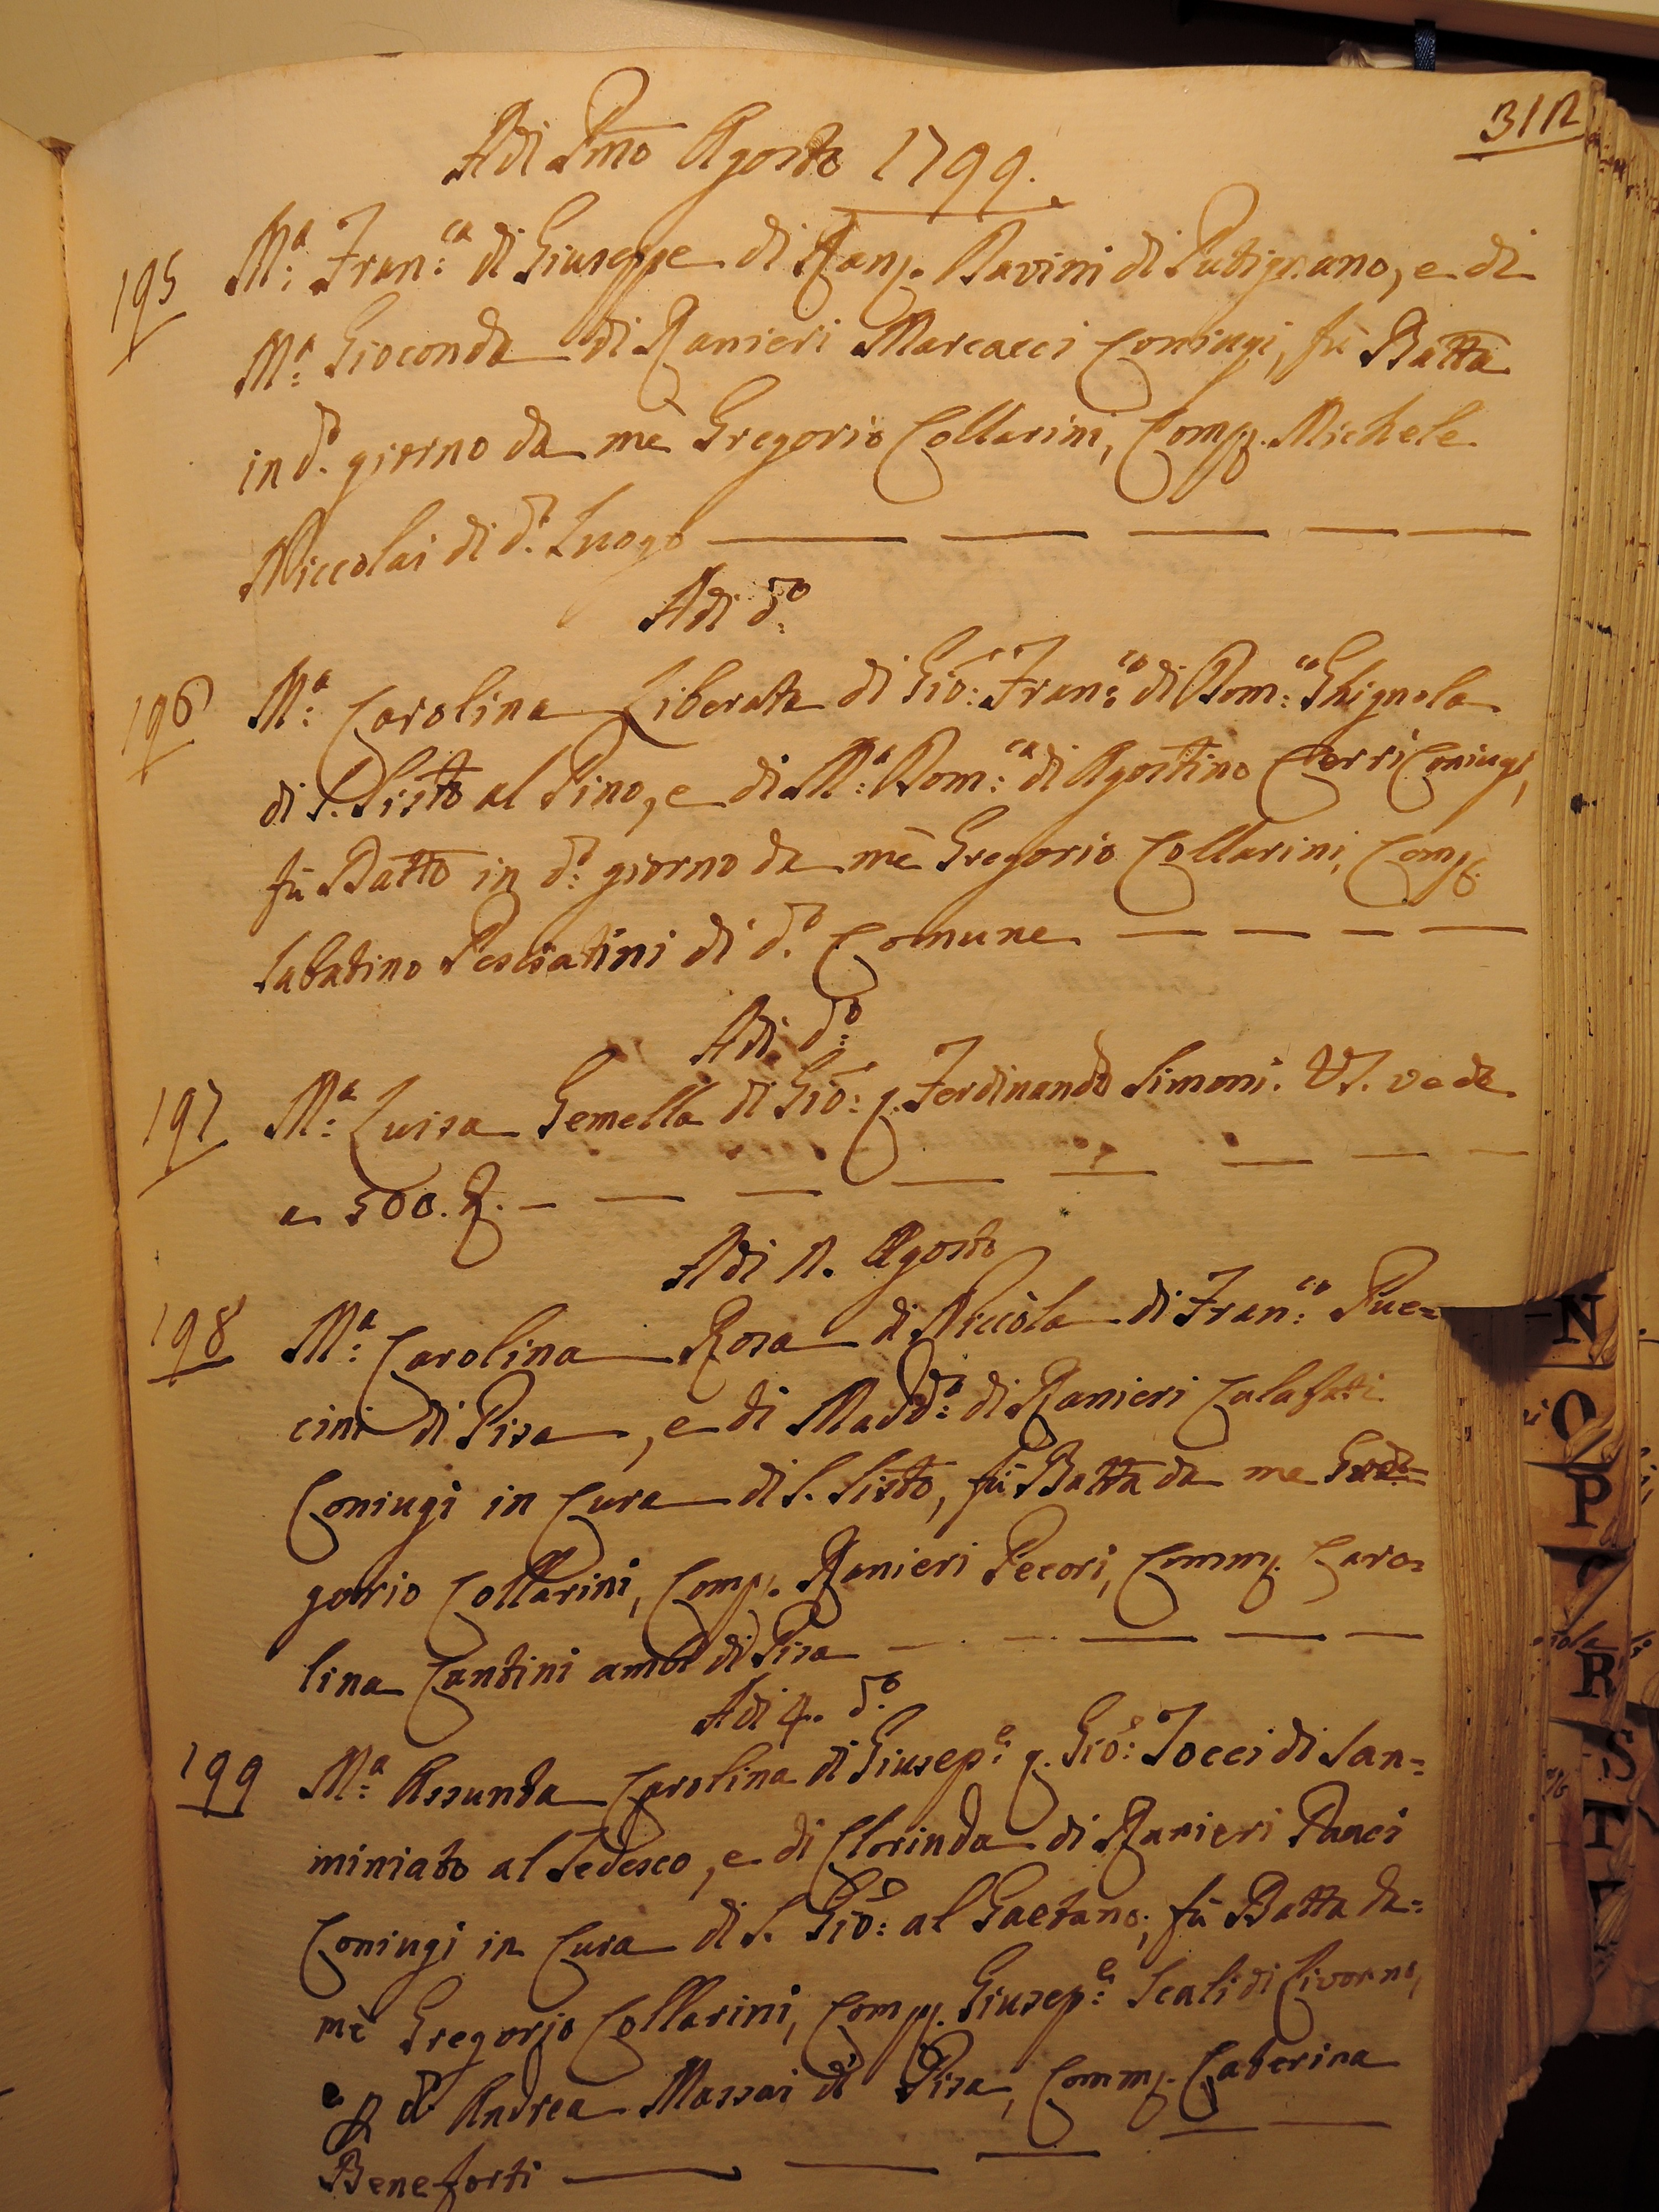 312
Adi Pmo Agosto 1799.
195 Ma: Fran:ca di Giuseppe di Ranj. Bavini di Putignano, e di
Ma: Gioconda di Ranieri Marcacci Coniugi, fù Batta
in do. giorno da mè Gregorio Collarini, Comp. Michele
Niccolai di do. Luogo
Adi do:
196 Ma: Carolina Liberata di Gio: Fran:co di Dom:co Ghignola
di S. Sisto al Pino, e di Ma: Dom:ca di Agostino Cerri Coniugi,
fù Batta in do: giorno da mè Gregorio Collarini, Comp.
Sabatino Pesciatini di do. Comune
Adi do:
197 Ma: Luisa Gemella di Gio: q. Ferdinando Simoni. VS. vede
a 500. R.
Adi 2. Agosto
198 Ma: Carolina Rosa di Niccòla di Fran:co Puc=
cini di Pisa, e di Madda: di Ranieri Calafati
Coniugi in Cura di S. Sisto, fù Batta da me Gre=
gorio Collarini, Comp. Ranieri Pecori, Comm. Caro=
lina Cantini ambi di Pisa
Adi 4. do.
199 Ma: Assunta Carolina di Giusep:e q. Gio: Tocci di San=
miniato al Tedesco, e di Clorinda di Ranieri Panci
Coniugi in Cura di S. Gio: al Gaetano, fù Batta da=
mè Gregorio Collarini, Comp. Giusep:e Scali di Livorno,
e p do. Andrea Massai di Pisa, Comm. Caterina
Beneforti
N
O
P
R
S
T